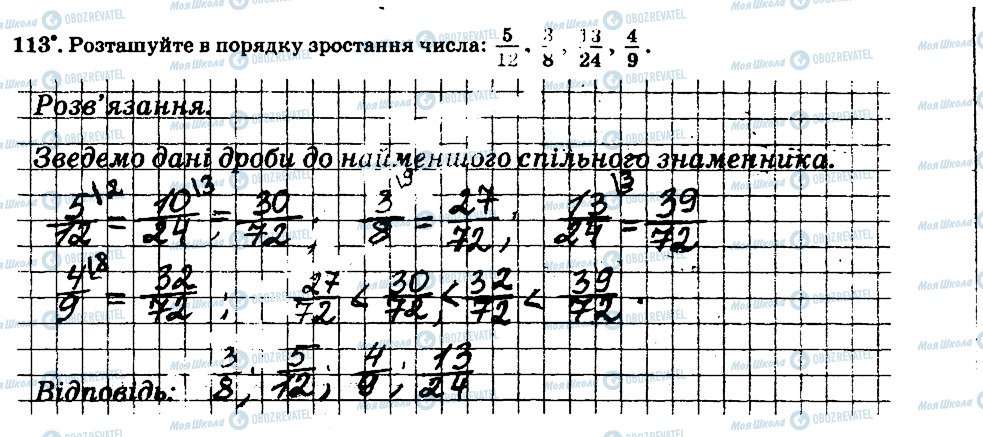 113°. Розташуйте в порядку зростання числа: 5/12, 3/8, 13/24, 4/9.
Розв'язання.
Зведемо дані дроби до найменшого спільного знаменника.
5/12 \2 = 10/24 \3 = 30/72; 3/8 \9 = 27/72; 13/24 \3 = 39/72
4/9 \8 = 32/72; 27/72 < 30/72 < 32/72 < 39/72.
Відповідь: 3/8; 5/12; 4/9; 13/24